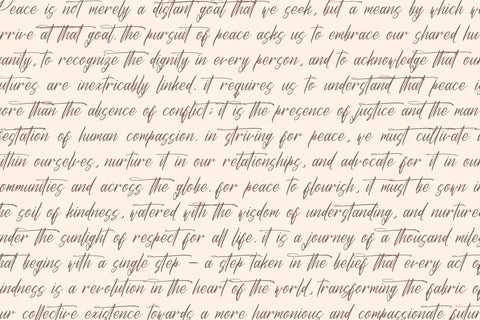 Peace is not merely a distant goal that we seek, but a means by which w
rrive at that goal. the pursuit of peace asks us to embrace our shared hu
anity, to recognize the dignity in every person, and to acknowledge that our
utures are inextricably linked. it requires us to understand that peace is
ore than the absence of conflict; it is the presence of justice and the man
festation of human compassion. in striving for peace, we must cultivate i
ithin ourselves, nurture it in our relationships, and advocate for it in our
ommunities and across the globe. for peace to flourish, it must be sown in
he soil of kindness, watered with the wisdom of understanding, and nurture
nder the sunlight of respect for all life. it is a journey of a thousand miles
hat begins with a single step – a step taken in the belief that every act of
indness is a revolution in the heart of the world, transforming the fabric of
ur collective existence towards a more harmonious and compassionate futur